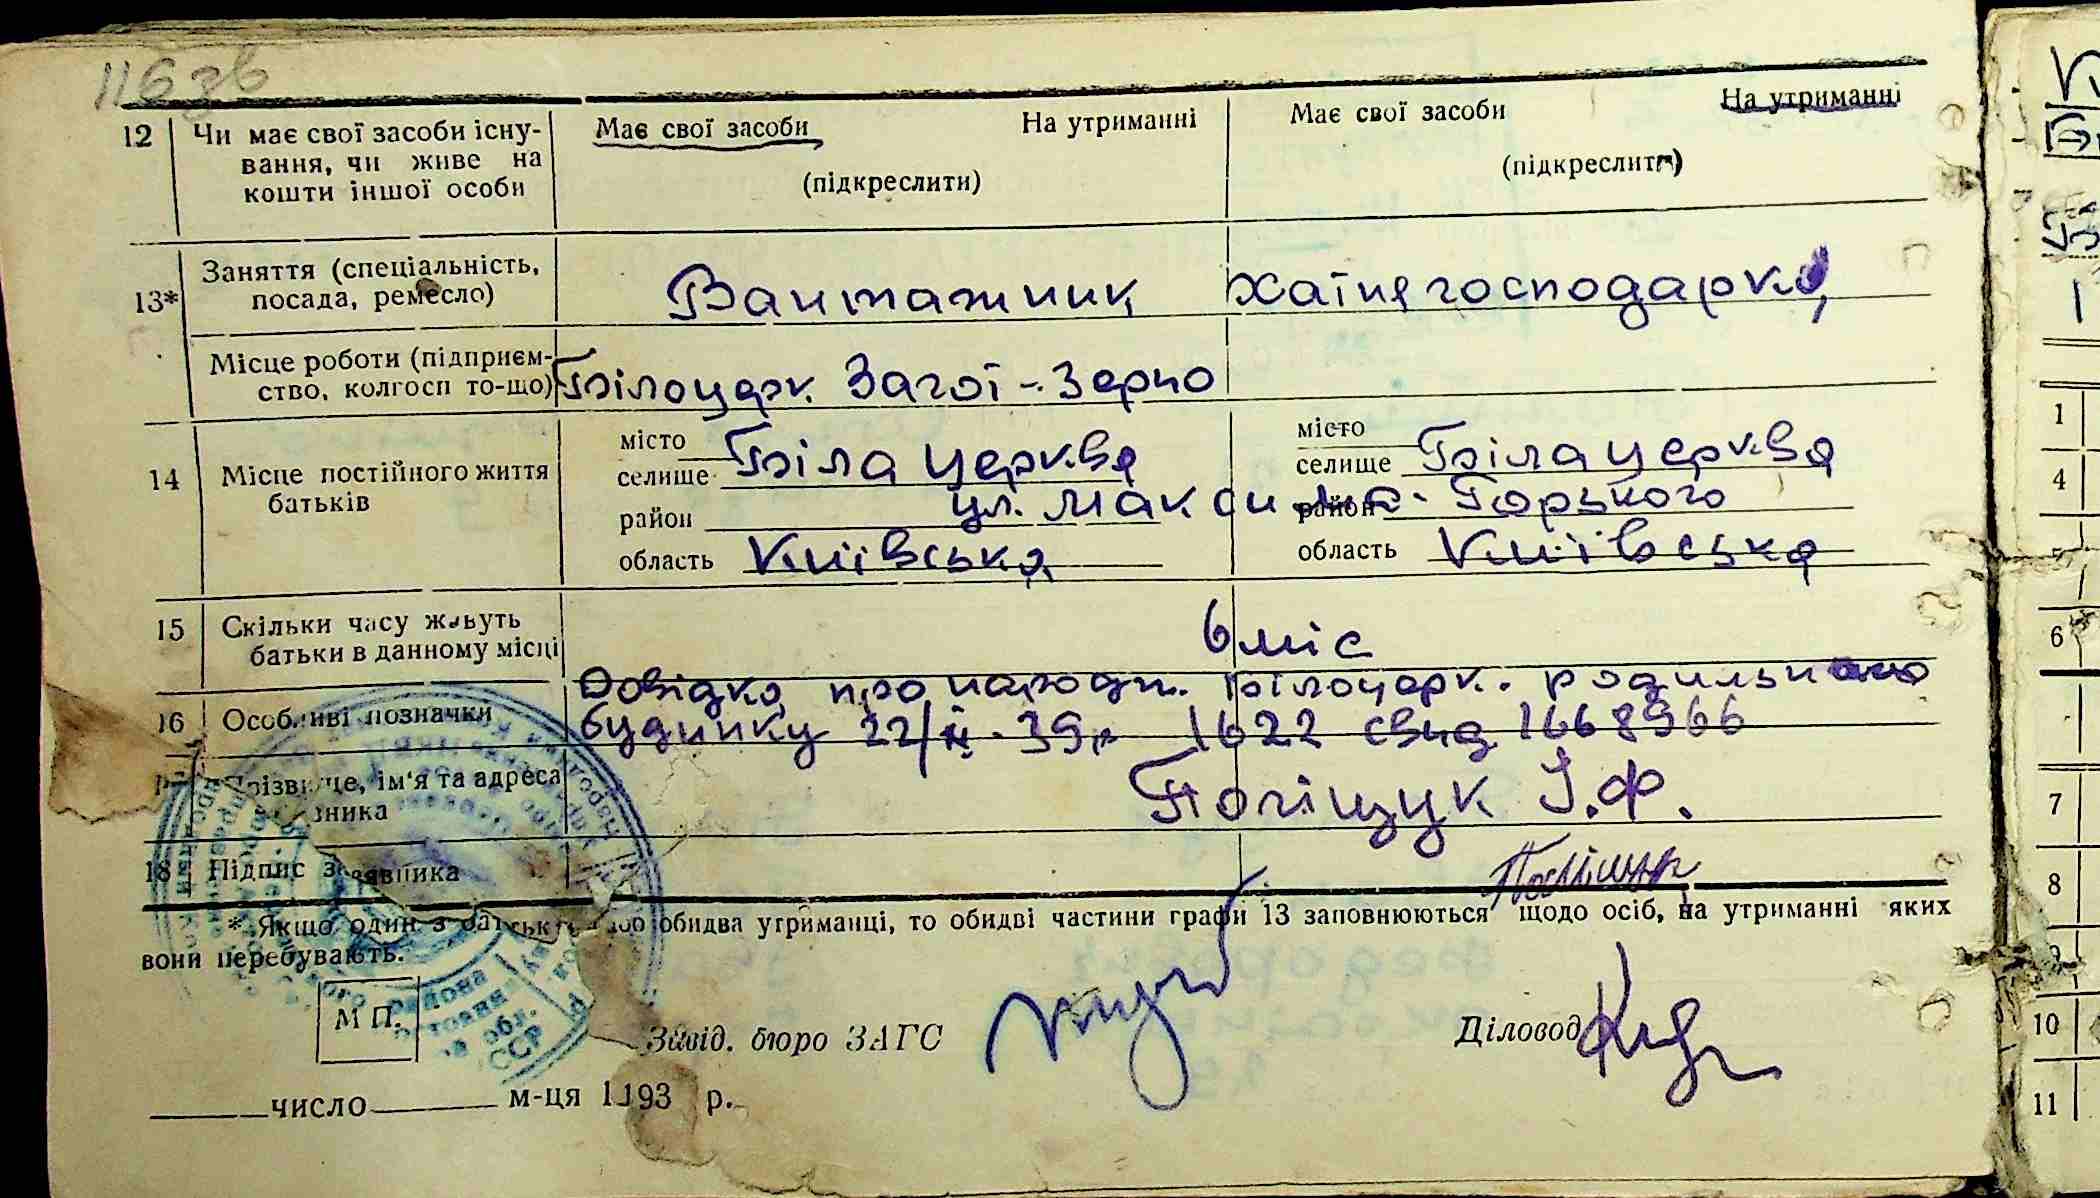 116 зв
12 Чи має свої засоби існу-
вання, чи живе на
кошти іншої особи
Має свої засоби На утриманні
(підкреслити)
Має свої засоби На утриманні
(підкреслити)
13* Заняття (спеціальність,
посада, ремесло)
Вантажник Хатня господарка
Місце роботи (підприєм-
ство, колгосп то-що)
Білоцерк. Загот-Зерно
14 Місце постійного життя
батьків
місто
селище Біла Церква
район
область Київська
місто
селище Біла Церква
район
ул. Максима Горького
область Київська
15 Скільки часу живуть
батьки в данному місці
6 міс
16 Особливі позначки
Довідка про народж. Білоцерк. родильного
будинку 22/ 39р 1622 свид 1668966
ім'я та адреса
Поліщук І.Ф.
18 Підпис заявника
Поліщук
* Якщо один з батьків або обидва утриманці, то обидві частини графи 13 заповнюються щодо осіб, на утриманні яких
вони перебувають.
М П.
Завід. бюро ЗАГС
Діловод
число м-ця 193 р.
1
4
5
6
7
8
9
10
11